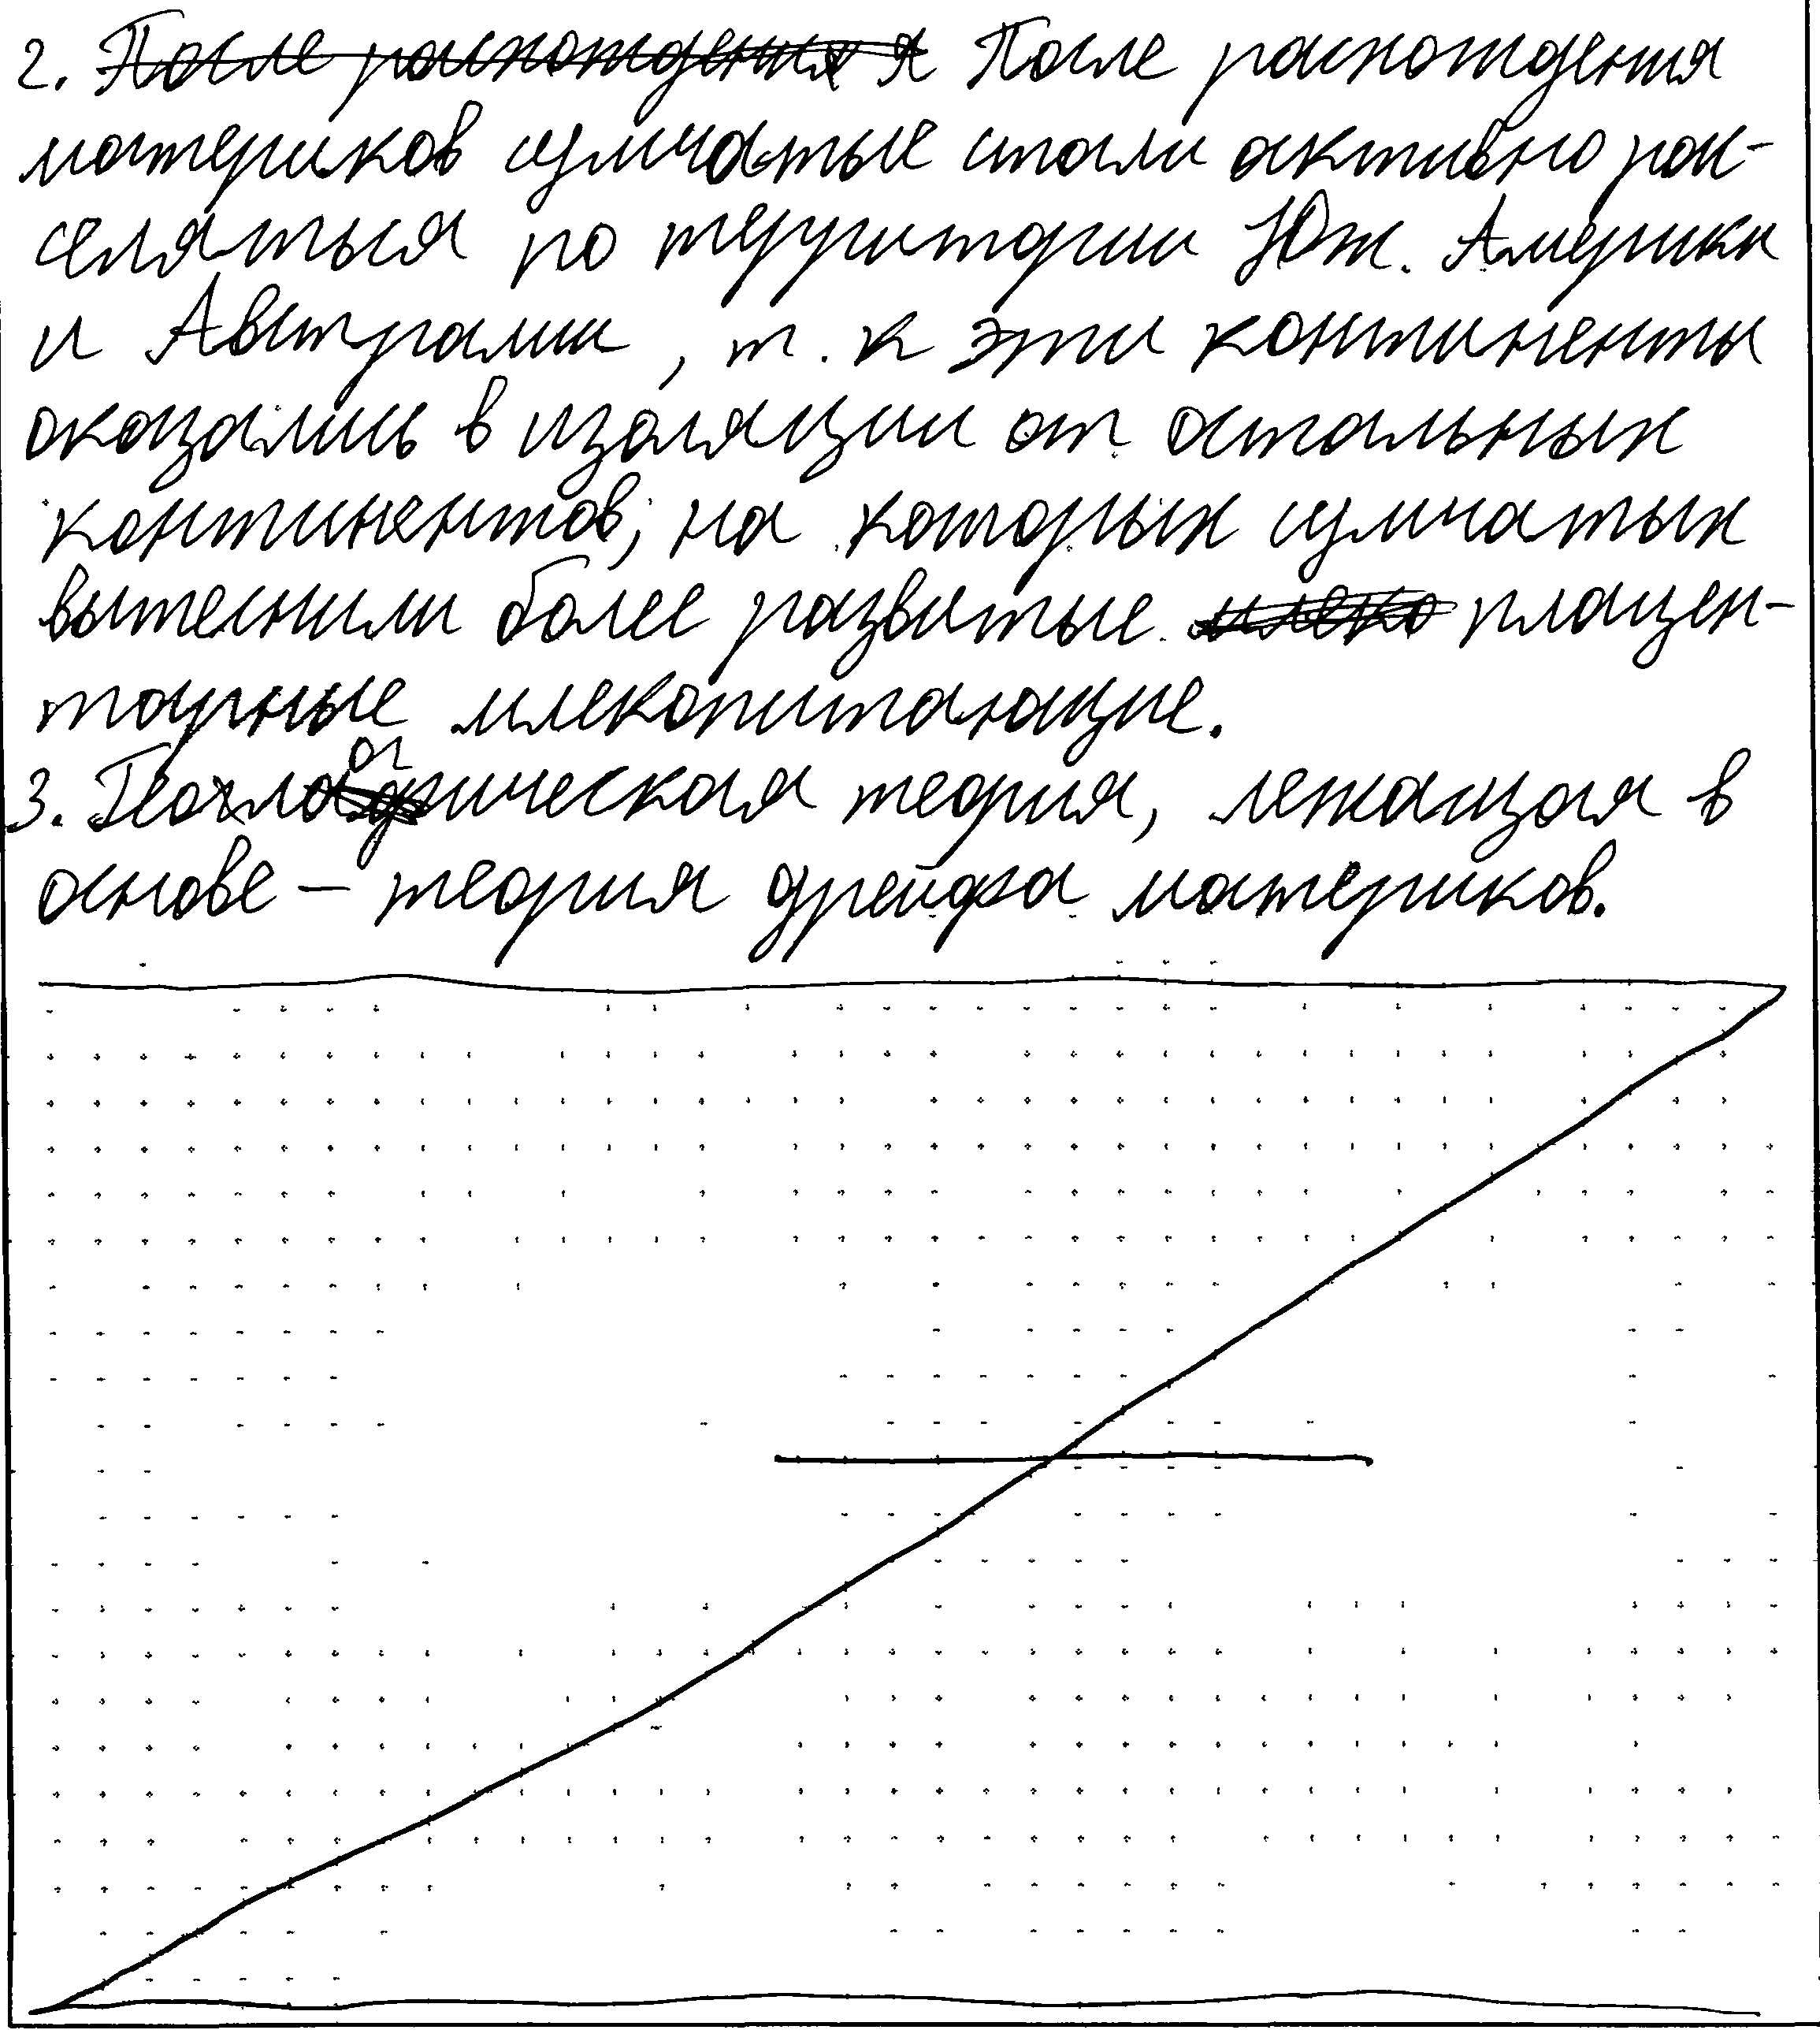 2. После расхождения
материков сумчатые стали активно рас-
селяться по территории Юж. Америки
и Австралии, т. к эти континенты
оказались в изоляции от остальных
континентов, на которых сумчатых
вытеснили более развитые плацен-
тарные млекопитающие.
3. Геологическая теория, лежащая в
основе – теория дрейфа материков.